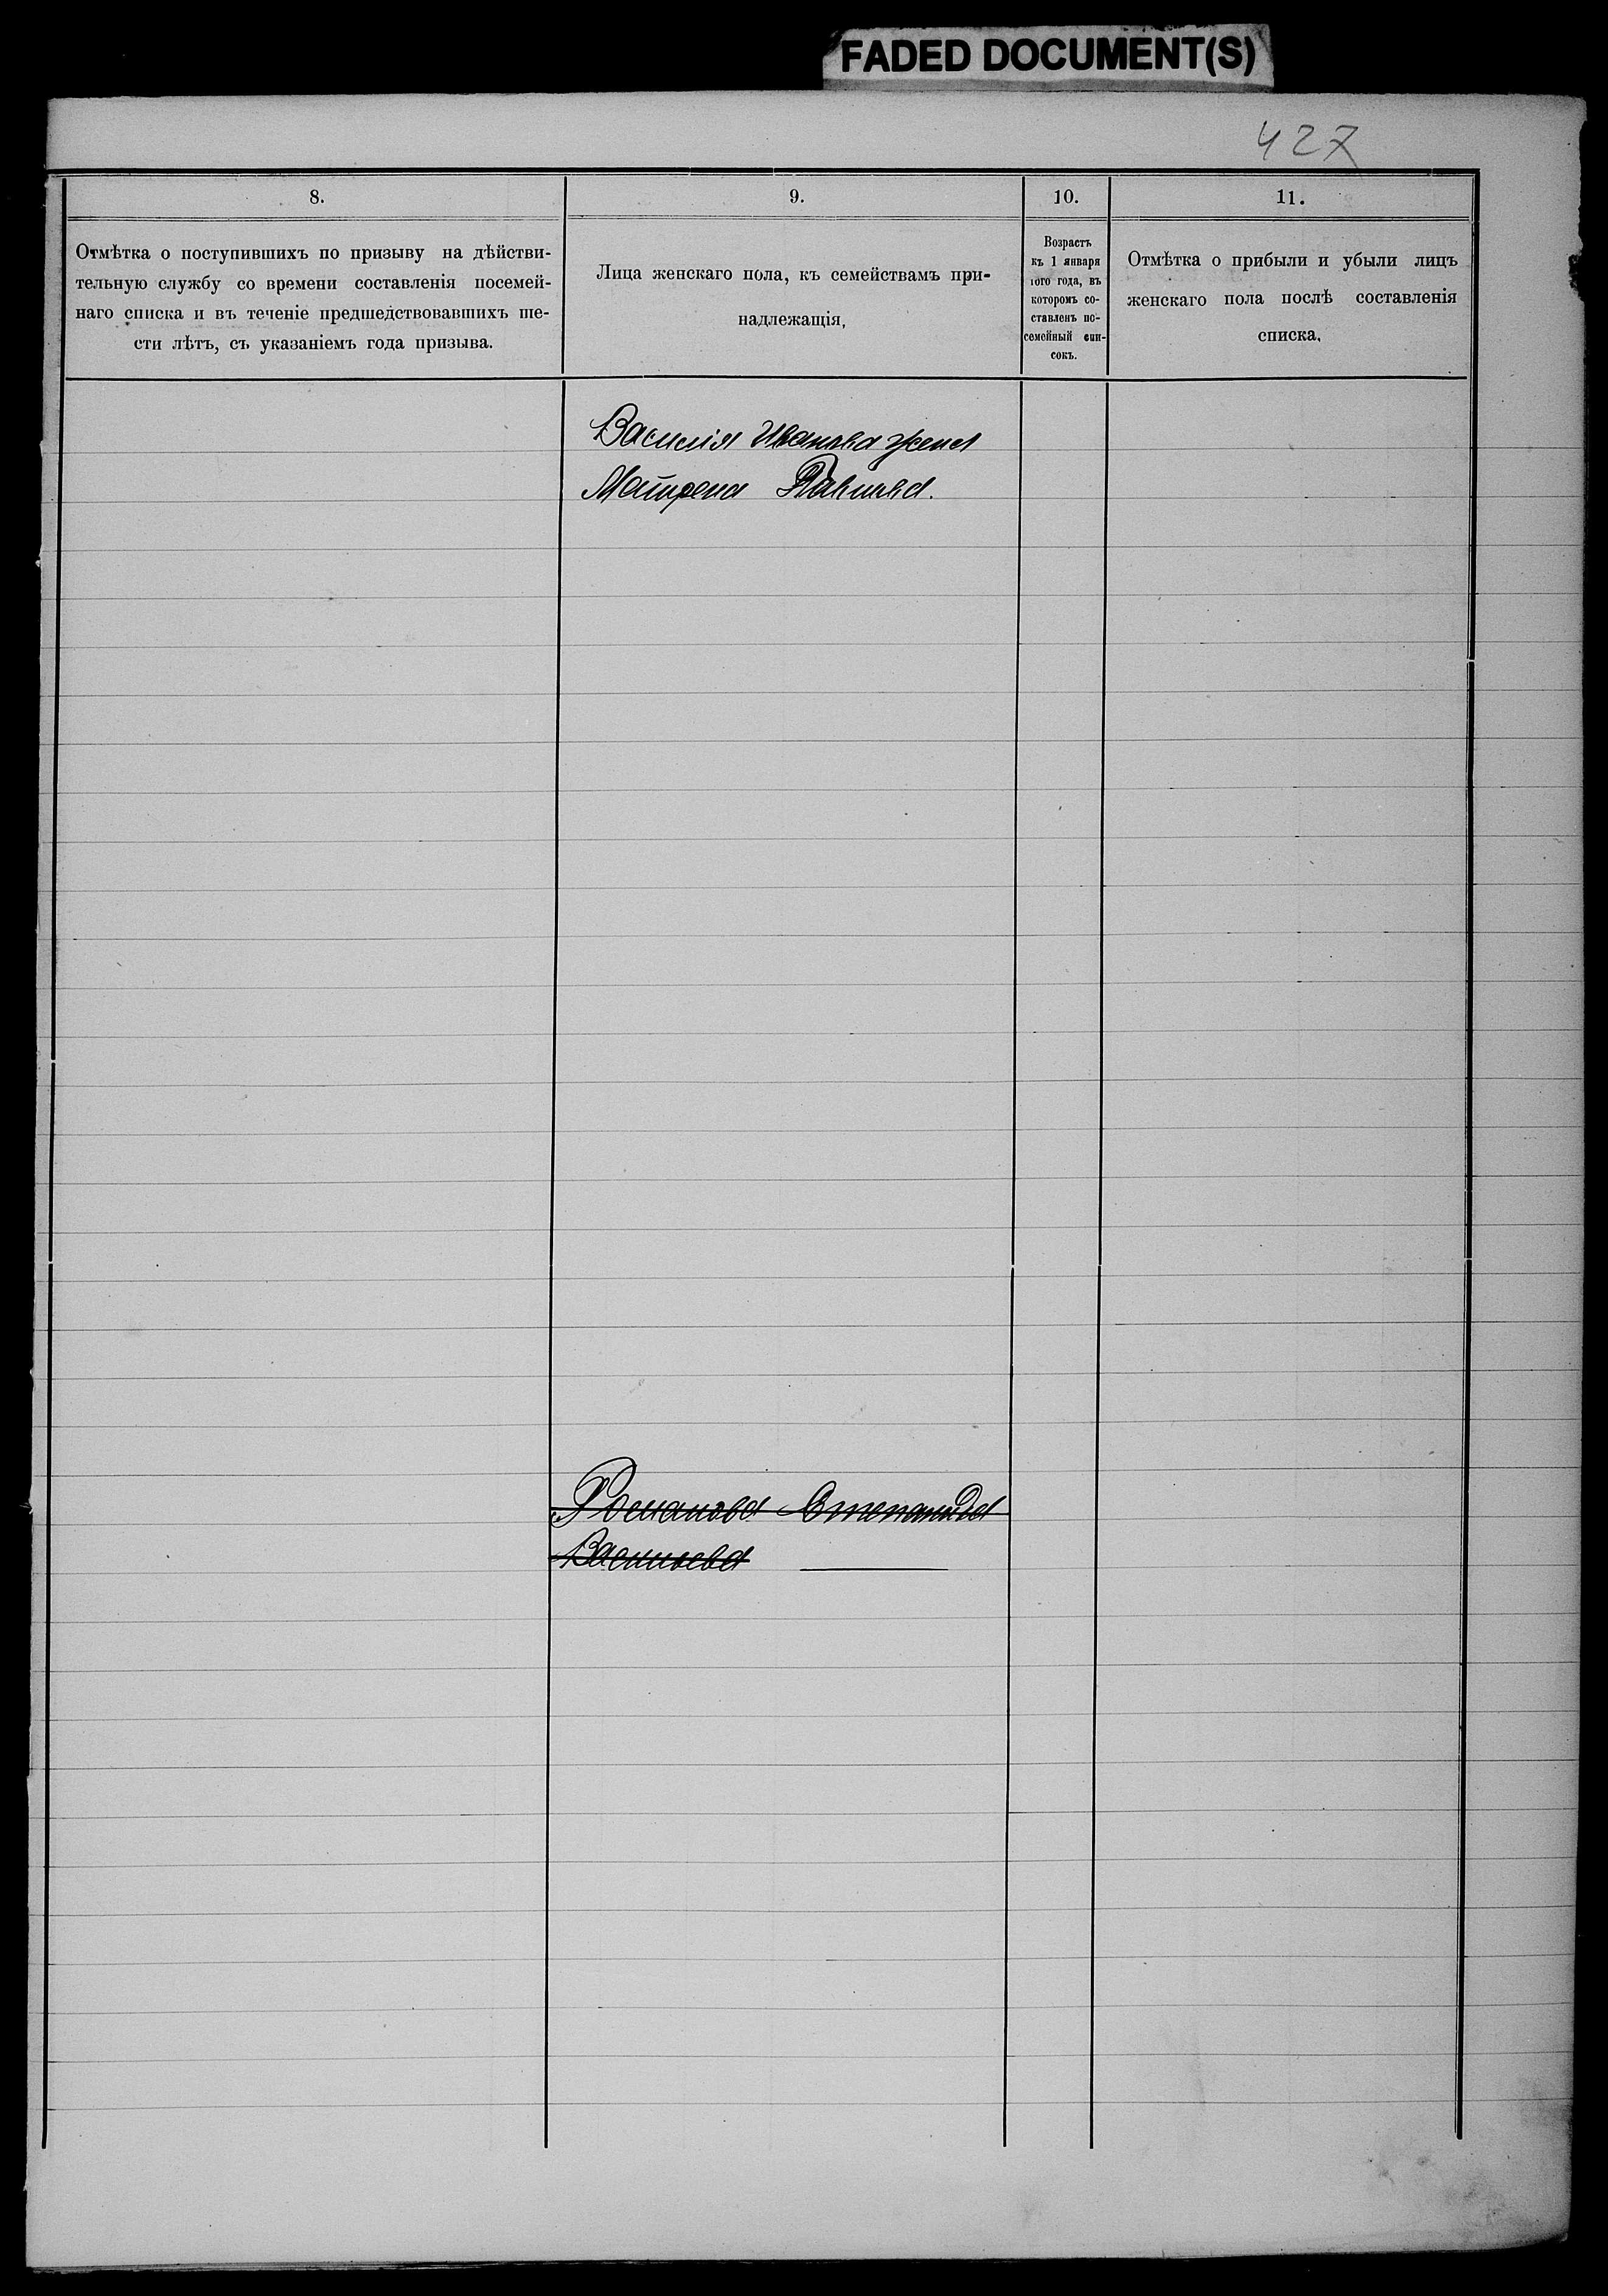 FADED DOCUMENT(S)
427
8.
9.
10.
11.
Отмѣтка о поступившихъ по призыву на дѣйстви-
тельную службу со времени составленія посемей-
наго списка и въ теченіе предшедствовавшихъ ше-
сти лѣтъ, съ указаніемъ года призыва.
Лица женскаго пола, къ семействамъ при-
надлежащія,
Возрастъ
къ 1 января
того года, въ
которомъ со-
ставленъ по-
семейный спи-
сокъ.
Отмѣтка о прибыли и убыли лицъ
женскаго пола послѣ составленія
списка,
Василія Иванова жена
Матрена Павлова.
Романова Степанида
Васильева